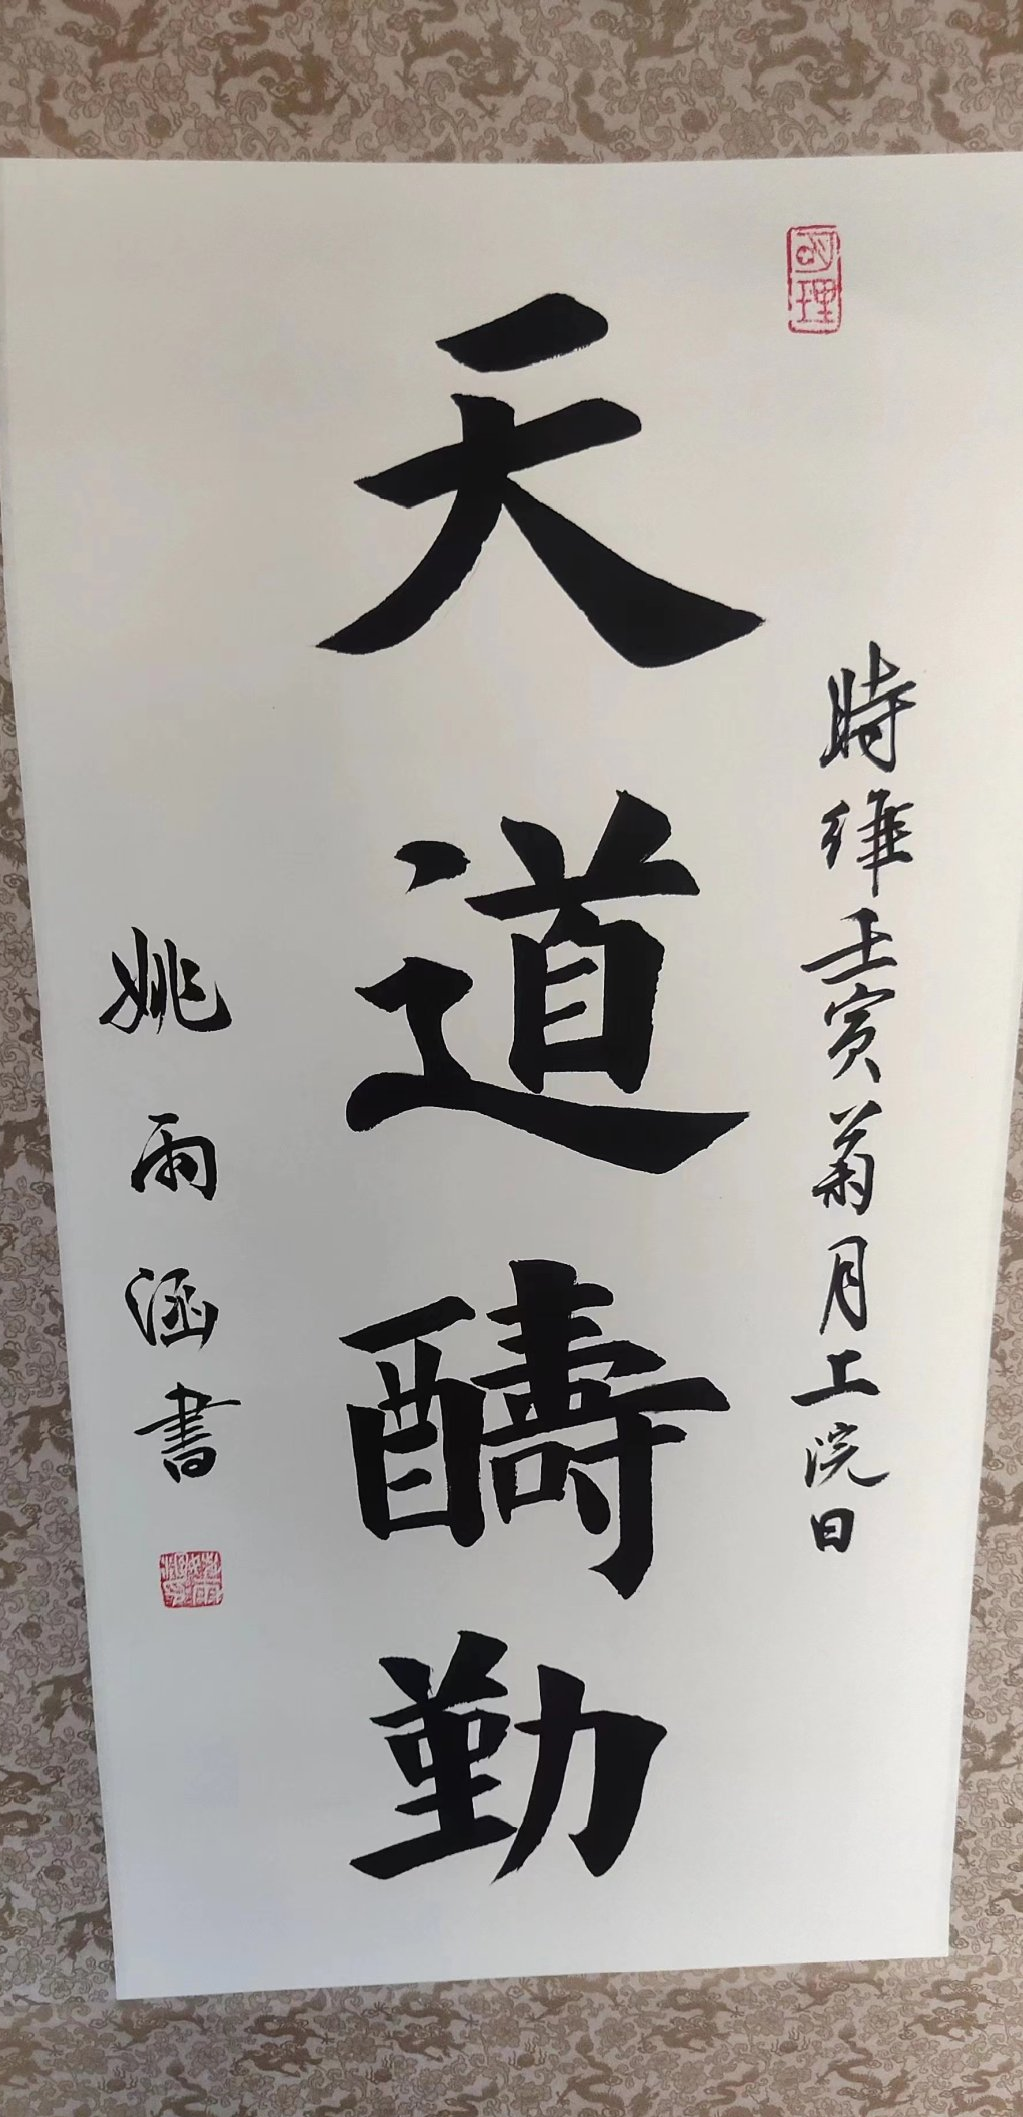 明理
時維壬寅菊月上浣日
天道酬勤
姚雨涵書